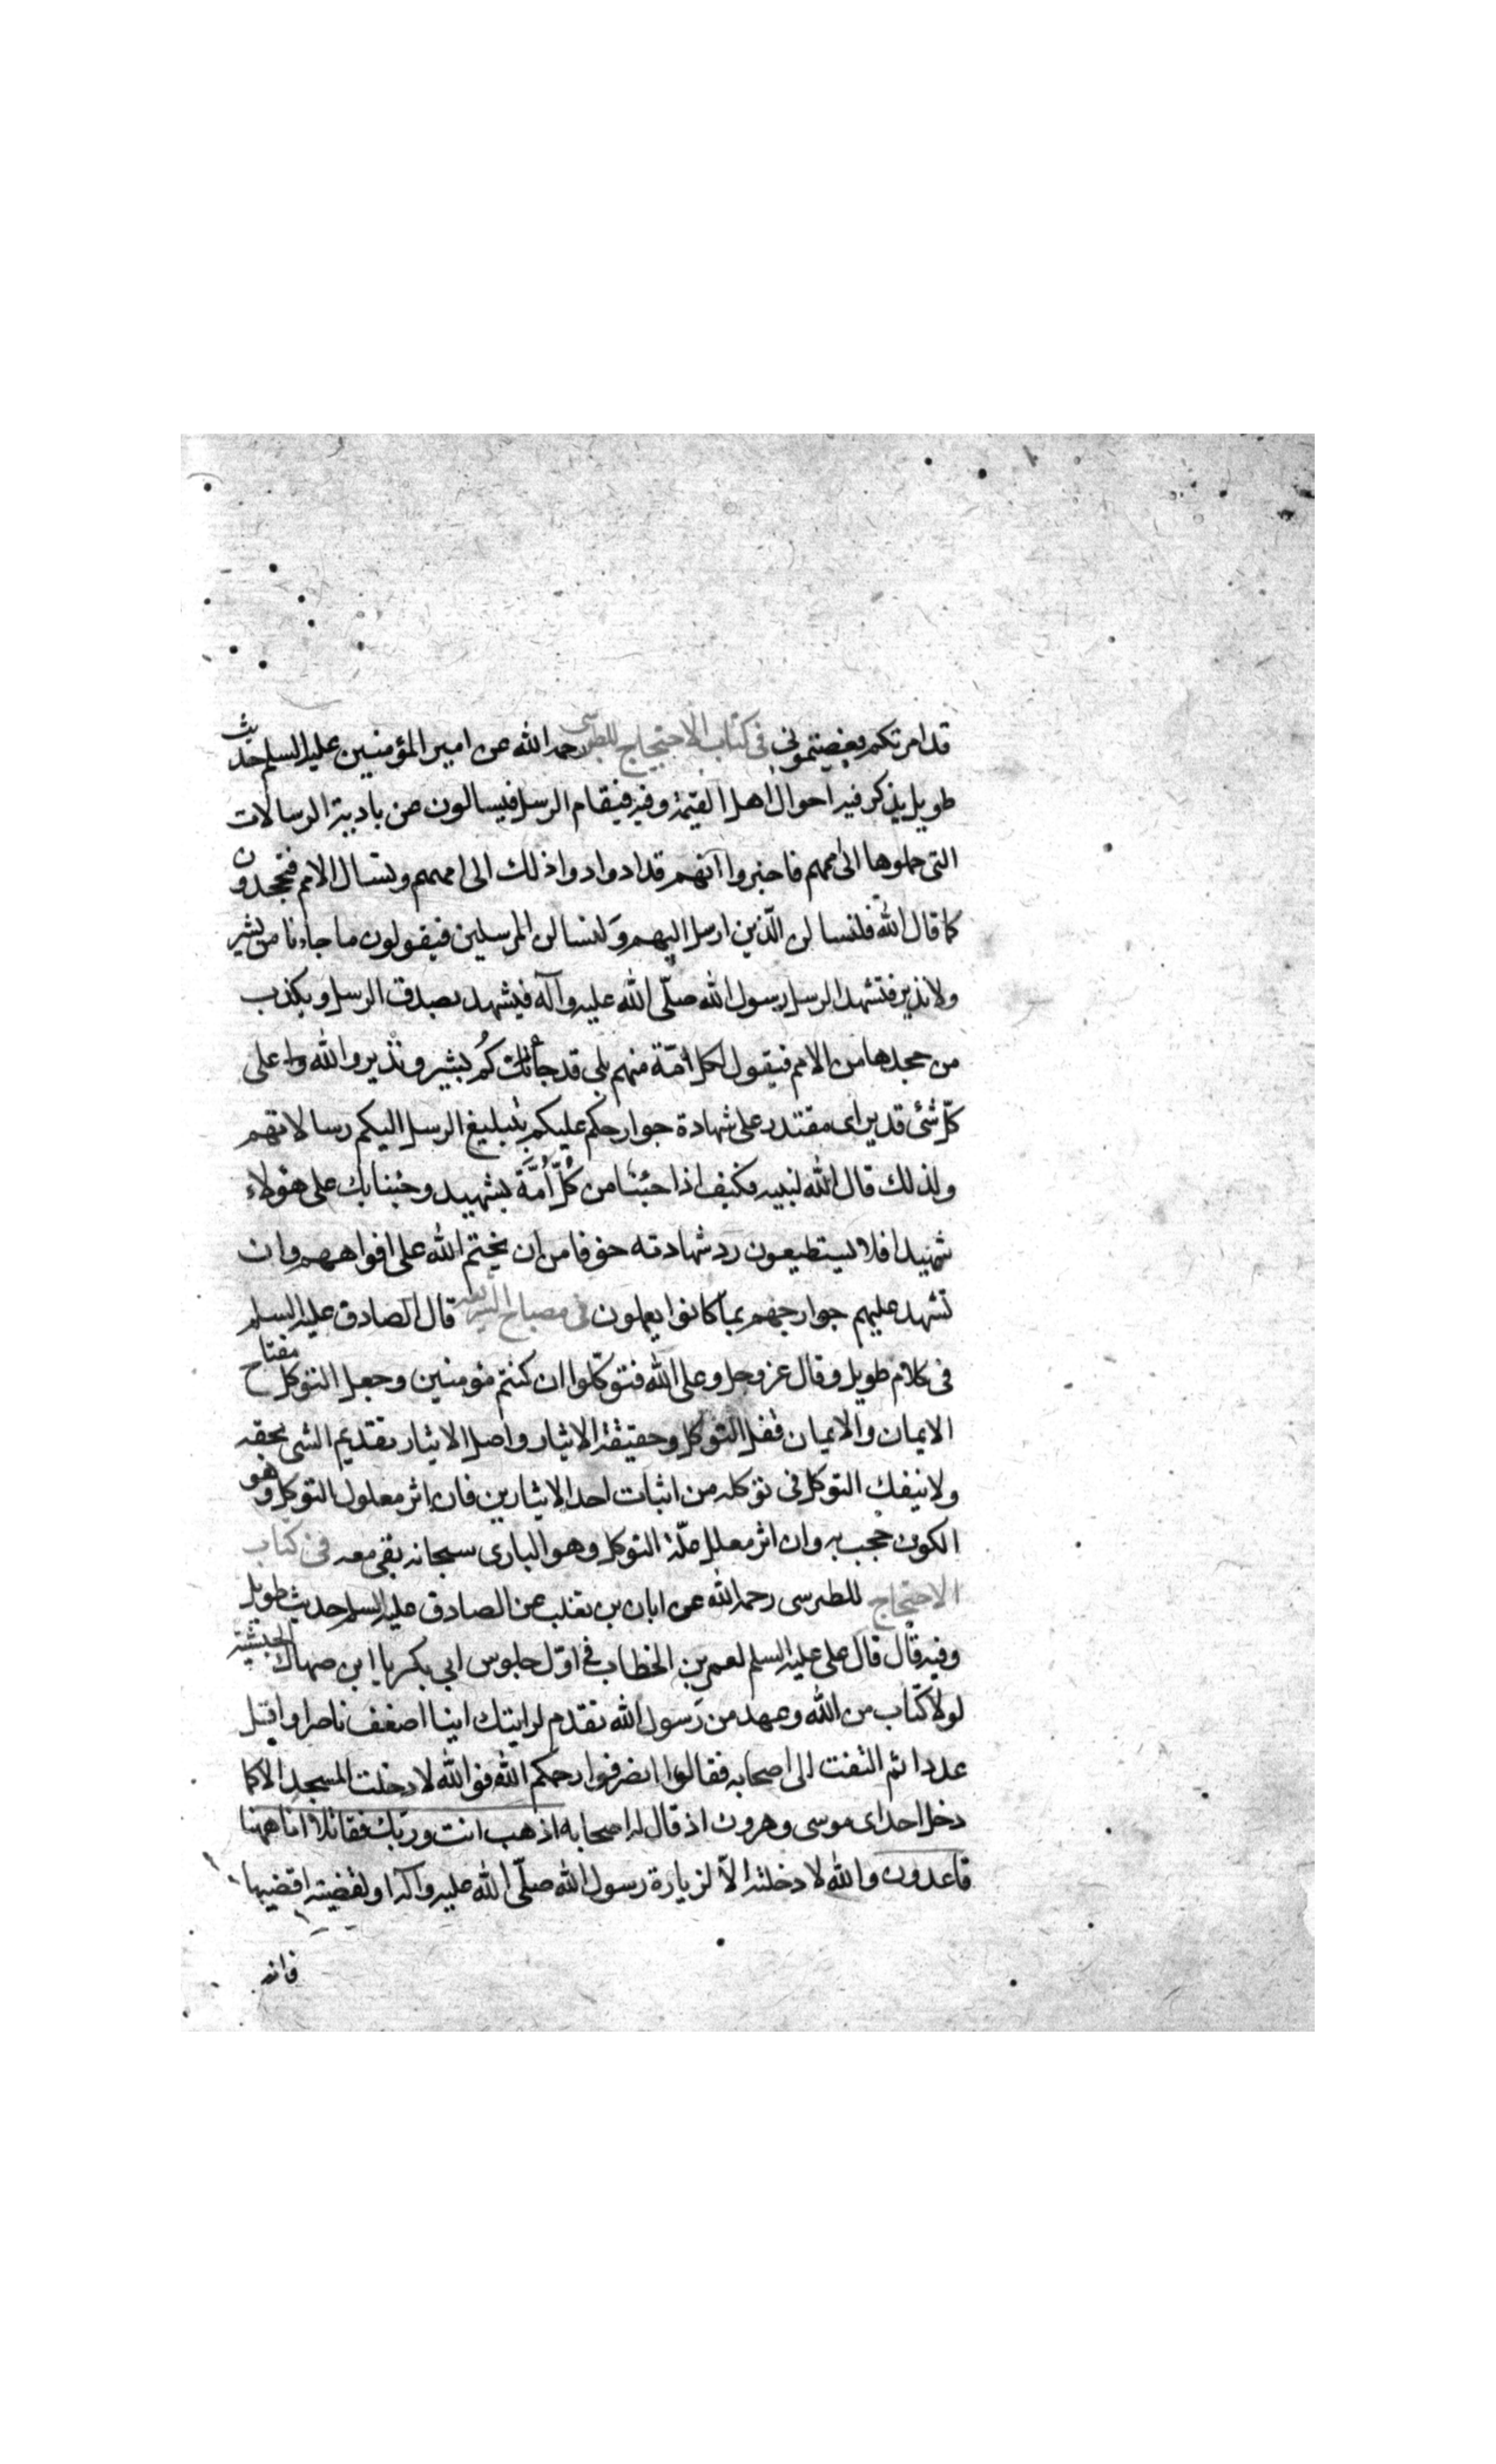 قد امرتكم بغصيتمونى فى كتاب الاحتجاج للطبرسى رحمه الله عن امير المؤمنين عليه السلم حديث
طويل يذكر فيه احوال اهل القيمة وفيه فيقام الرسل فيسالون عن تادية الرسالات
التى حملوها الى اممهم فاخبروا انهم قد ادوا ذلك الى اممهم وتسال الامم فتجحدون
كما قال الله فلنسالن الّذين ارسل اليهم وَلنسالن المرسلين فيقولون ما جاءنا من بشير
ولا نذير فتشهد الرسل رسول الله صلّى الله عليه وآله فيشهد بصدق الرسل ويكذب
من جحدها من الامم فيقول لكل امّة منهم بلى قد جائكُم بشير ونذير والله على
كلّ شئ قدير اى مقتدر على شهادة جوارحكم عليكم بتبليغ الرسل اليكم رسالاتهم
ولذلك قال الله لنبيه فكيف اذا جئنا من كُلّ اُمَّة بشهيد وجئنا بك على هؤلاء
شهيدا فلا يستطيعون رد شهادته خوفا من ان يختم الله على افواههم وان
تشهد عليهم جوارحهم بما كانوا يعملون فى مصباح الشريعه قال الصادق عليه السلم
فى كلام طويل وقال عز وجل وعلى الله فتوكّلوا ان كنتم مؤمنين وجعل التوكل مفتاح
الايمان والايمان قفل التوكل وحقيقة الايثار واصل الايثار تقديم الشى بحقه
ولا ينفك التوكل فى توكله من اثبات احد الايثارين فان اثر معلول التوكل وهو
الكون حجب به وان اثر معلل علّة التوكل وهو البارى سبحانه بقى معه فى كتاب
الاحتجاج للطبرسى رحمه الله عن ابان بن تغلب عن الصادق عليه السلم حديث طويل
وفيه قال قال على عليه السلم لعمر بن الخطاب فى اوّل جلوس ابى بكر يا ابن صهاك الحبشية
لولا كتاب من الله وعهد من رسول الله تقدم لرايتك اينا اضعف ناصرا واقل
عددا ثم التفت الى اصحابه فقال انصرفوا رحمكم الله فوالله لا دخلت المسجد الا كما
دخل اخواى موسى وهرون اذ قال له اصحابه اذهب انت وربّك فقاتلا انا ههنا
قاعدون والله لا دخلته الاّ لزيارة رسول الله صلّى الله عليه وآله او لقضية اقضيها
فانه